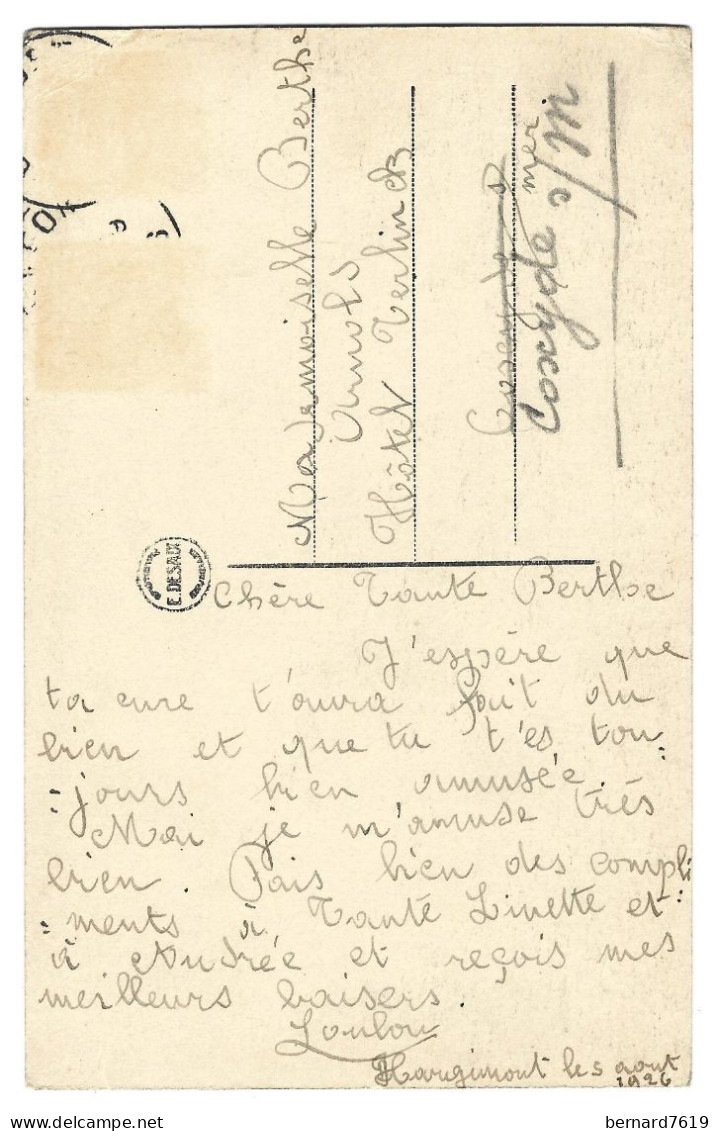 Mademoiselle Berthe
Arnols
Hôtel Terlinck
mer
Coxyde s/M
E. DESAIX
Chère Tante Berthe
J'espère que
ta cure t'aura fait du
bien et que tu t'es tou=
=jours bien amusée.
Moi je m'amuse très
bien. Fais bien des compli
=ments à Tante Linette et
à Andrée et reçois mes
meilleurs baisers.
Loulou
Hargimont le 5 aout
1926
bernard7619